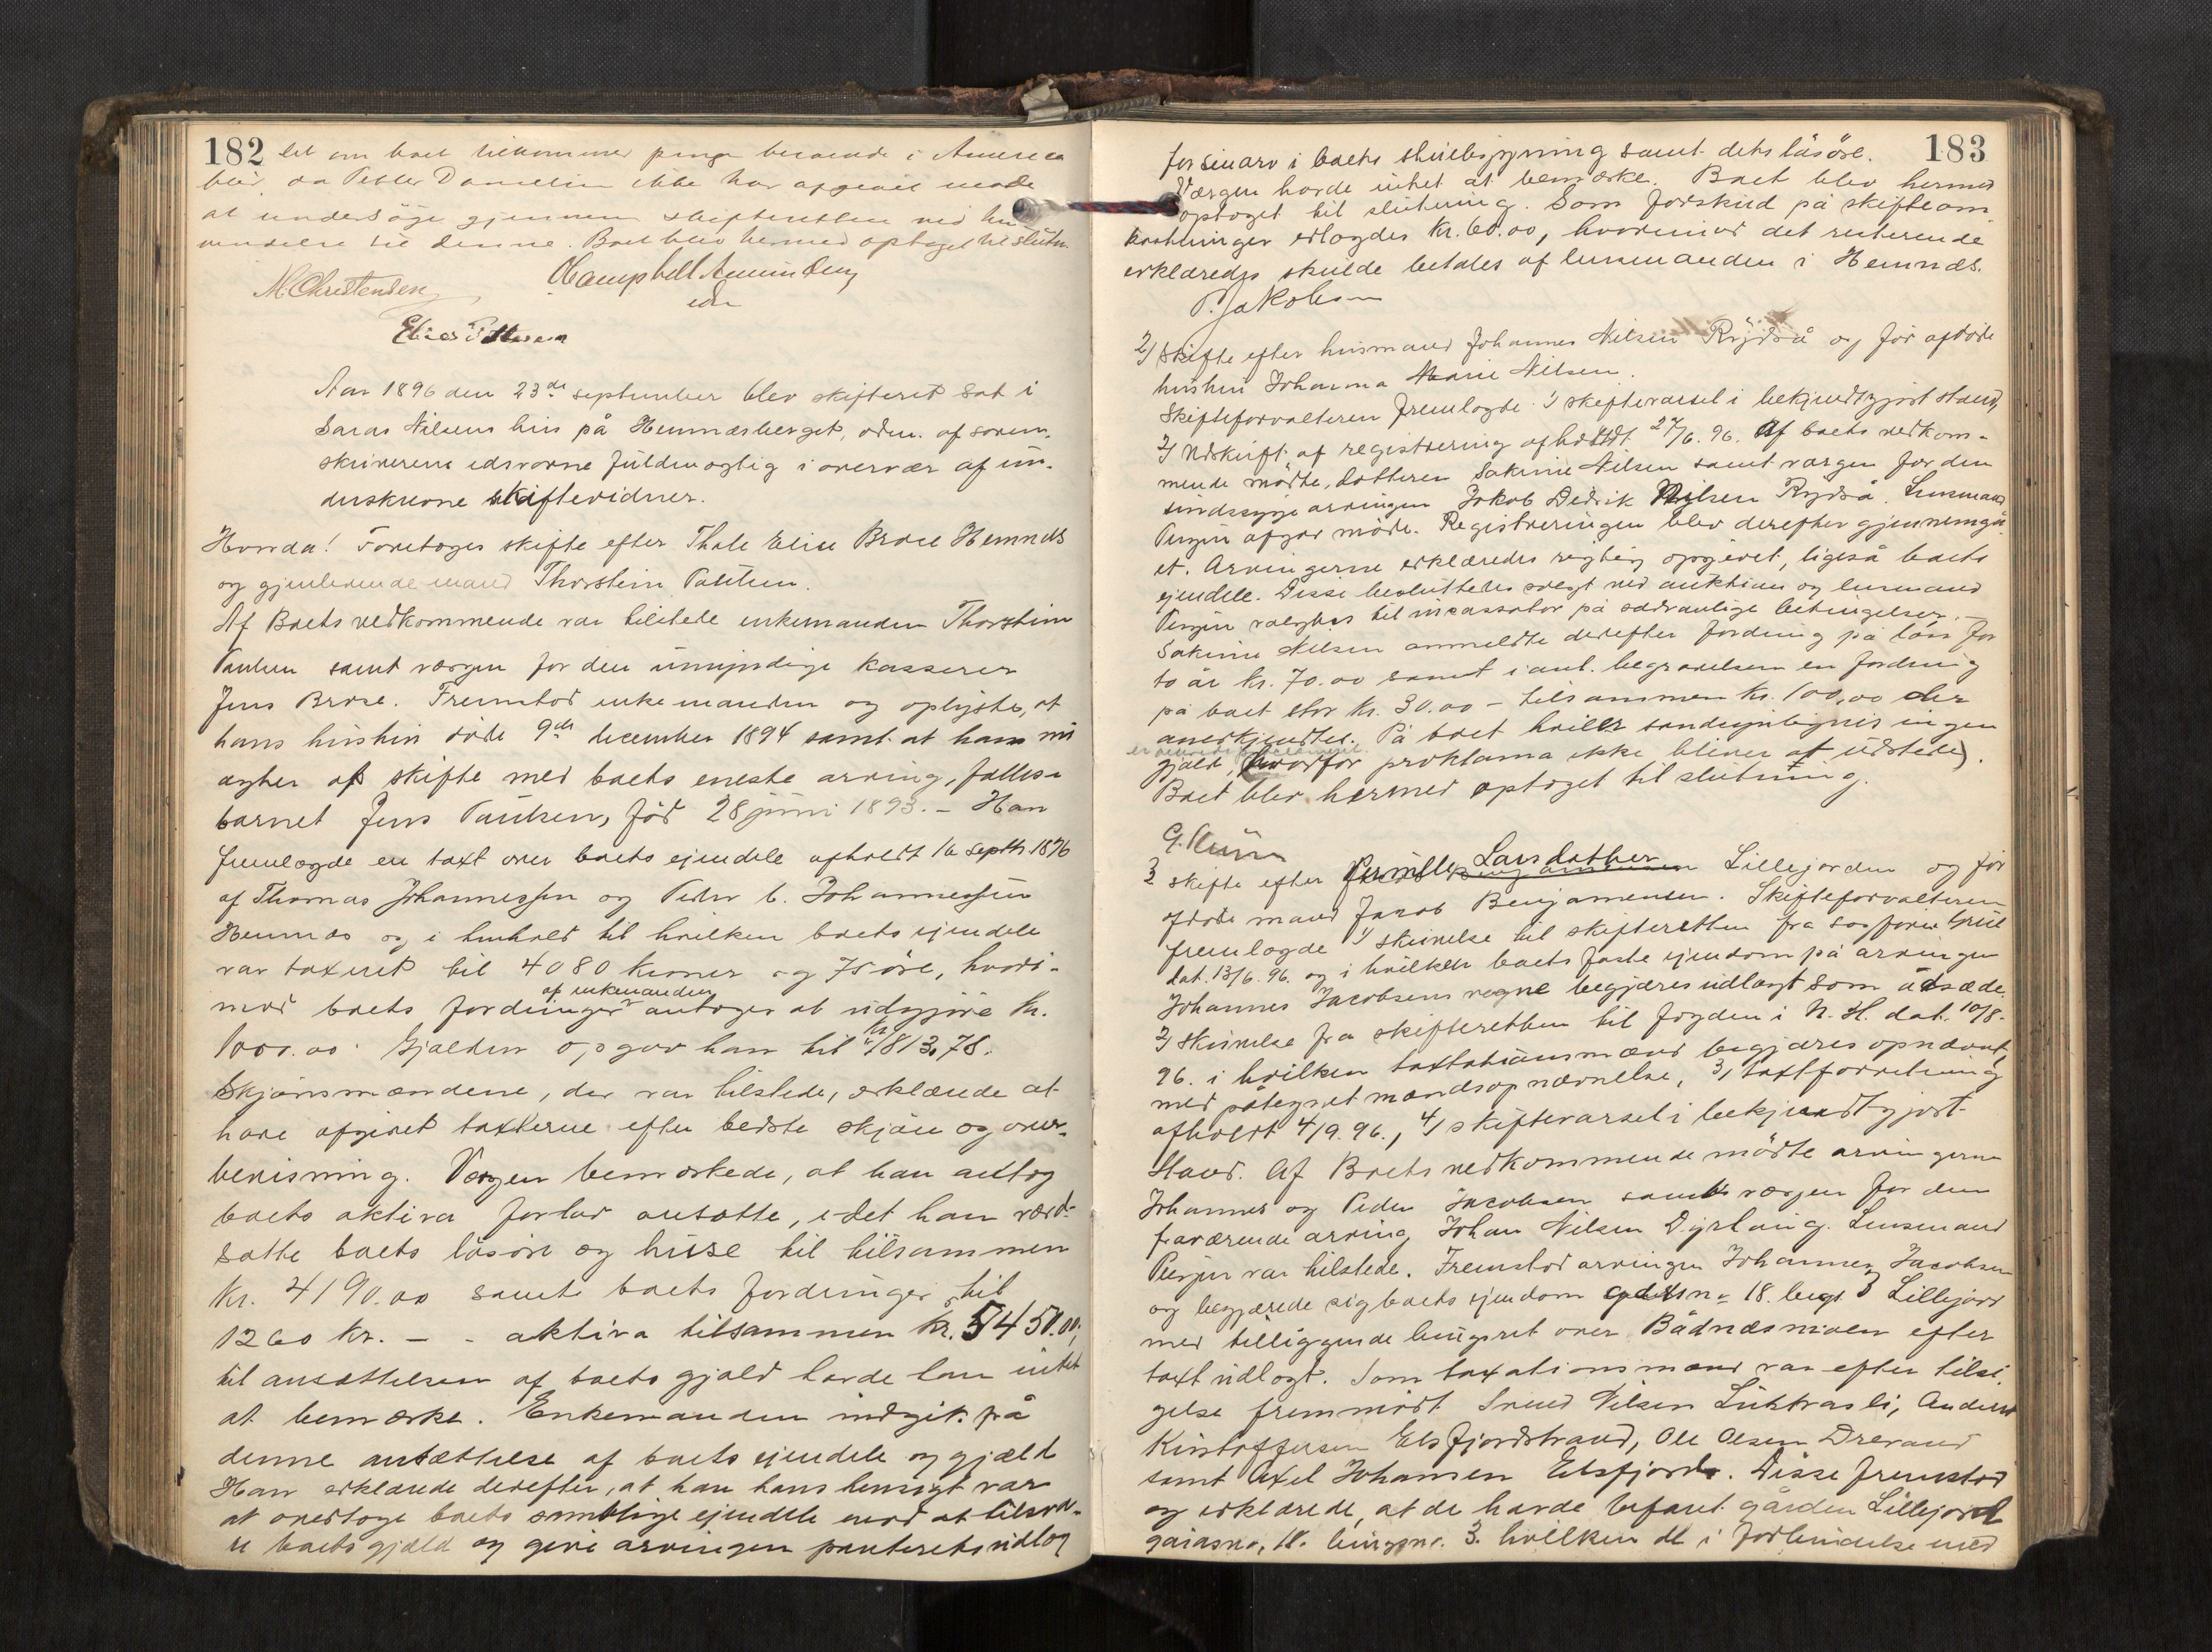 182
det om boet tilkommer penge beroende i America
blir, da Petter Danielsen ikke har afgivet möde
at undersöge gjennem skifteretten ved hen
vendelse til denne. Boet blev hermed optaget til slutn.
M. Christensen
Elias Pettersen
Aar 1896 den 23de september blev skifteret sat i
Saras Nilsens hus på Hemnæsberget, adm. af soren-
skriverens edsvorne fuldmægtig i overvær af un-
derskrevne skiftevidner.
Hvorda! Foretoges skifte efter Thale Elise Brose Hemnæs
og gjenlevende mand Thorstein Paulsen.
Af Boets vedkommende var tilstede enkemanden Thorstein
Paulsen samt værgen for den umyndige kasserer
Jens Brose. Fremstod enkemanden og oplyste, at
hans hustru döde 9de december 1894 samt at han nu
agter at skifte med boets eneste arving, fælles-
barnet Jens Paulsen, föd 28 juni 1893. - Han
fremlagde en taxt over boets ejendele afholdt 16 septbr 1896
af Thomas Johannessen og Peder C. Johannessen
Hemnæs og i henhold til hvilken boets ejendele
var taxeret til 4080 kroner og 75 öre, hvori-
mod boets fordringer af enkemanden antoges at udgjöre kr.
1000.00. Gjælden opgav han til kr. 1813.78.
Skjönsmændene, der var tilstede, erklærede at
have afgivet taxterne efter bedste skjön og over-
bevisning. Værgen bemærkede, at han antog
boets aktiva forlavt ansatte, idet han værd-
satte boets lösöre og huse til tilsammen
kr. 4190.00 samt boets fordringer til
1260 kr. - - aktiva tilsammen kr. 5450.00;
til ansættelsen af boets gjæld havde han intet
at bemærke. Enkemanden indgik på
denne ansættelse af boets ejendele og gjæld
Han erklærede derefter, at han hans hensigt var
at overtage boets samtlige ejendele mod at tilsva-
re boets gjæld og give arvingen panterets udlæg
183
for sin arv i boets skriebygning samt dets lösöre.
Værgen havde intet at bemærke. Boet blev hermed
optaget til slutning. Som forskud på skifteom
kostninger erlagdes kr. 60.00, hvorimod det resterende
erklæredes skulde betales af lensmanden i Hemnæs.
P. Jakobsen
2) Skifte efter husmand Johannes Nilsen Rydså og för afdöde
hustru Johanna Marie Nilsen.
Skifteforvalteren fremlagde 1) skiftevarsel i bekjendtgjort stand,
2) Udskrift af registrering afholdt 27/6. 96. Af boets vedkom-
mende mödte, datteren Sakrine Nilsen samt værgen for den
sindssyge arvingen Jakob Didrik Nilsen Rydså. Lensmand
afgav möde. Registreringen blev derefter gjennemgå
et. Arvingerne erklæredes rigtig opgivet, ligeså boets
ejendele. Disse besluttedes solgt ved auktion og lensmand
valgtes til incassator på sædvanlige betingelser. -
Sakrine Nilsen anmeldte derefter fordring på lön for
to år kr. 70.00 samt i anl. begravelsen en fordring
på boet stor kr. 30.00 - tilsammen kr. 100,00 der
anerkjendtes. På boet hviler sandsynligvis ingen
gjæld, (hvorfor proklama ikke bliver at udstede).
Boet blev hermed optaget til slutning.
3 Skifte efter Pernille Larsdatter Lillejorden og för
afdöde mand Jacob Benjamensen. Skifteforvalteren
fremlagde 1) skrivelse til skifteretten fra sagförer
dat. 13/6. 96. og i hvilken boets faste ejendom på arvingen
Johannes Jacobsens vegne begjæres udlagt som åsæde.
2) Skrivelse fra skifteretten til fogden i N. H. dat. 10/8.
96. i hvilken taxtationsmænd begjæres opnævnt,
med påtegnet mandsopnævnelse, 3) taxtforretning
afholdt 4/9. 96., 4) skiftevarsel i bekjendtgjort
Stand. Af Boets vedkommende mödte arvingerne
Johannes og Peder Jacobsen samt værgen for den
fraværende arving Johan Nilsen Dyrhaug. Lensmand
var tilstede. Fremstod arvingen Johannes Jacobsen
og begjærede sig boets ejendom gårdsn. 18. brugs 3 Lillejord
med tilliggende brugsret over Bådnæsmoen efter
taxt udlagt. Som taxationsmænd var efter tilsi-
gelse fremmödt Svend Nilsen Luktvasli, Anders
Kristoffersen Elsfjordstrand, Ole Olsen Drevand
samt Axel Johansen Elsfjord. Disse fremstod
og erklærede, at de havde befaret gården Lillejord
gårdsno. 18. brugsnr. 3. hvilken de i forbindelse med